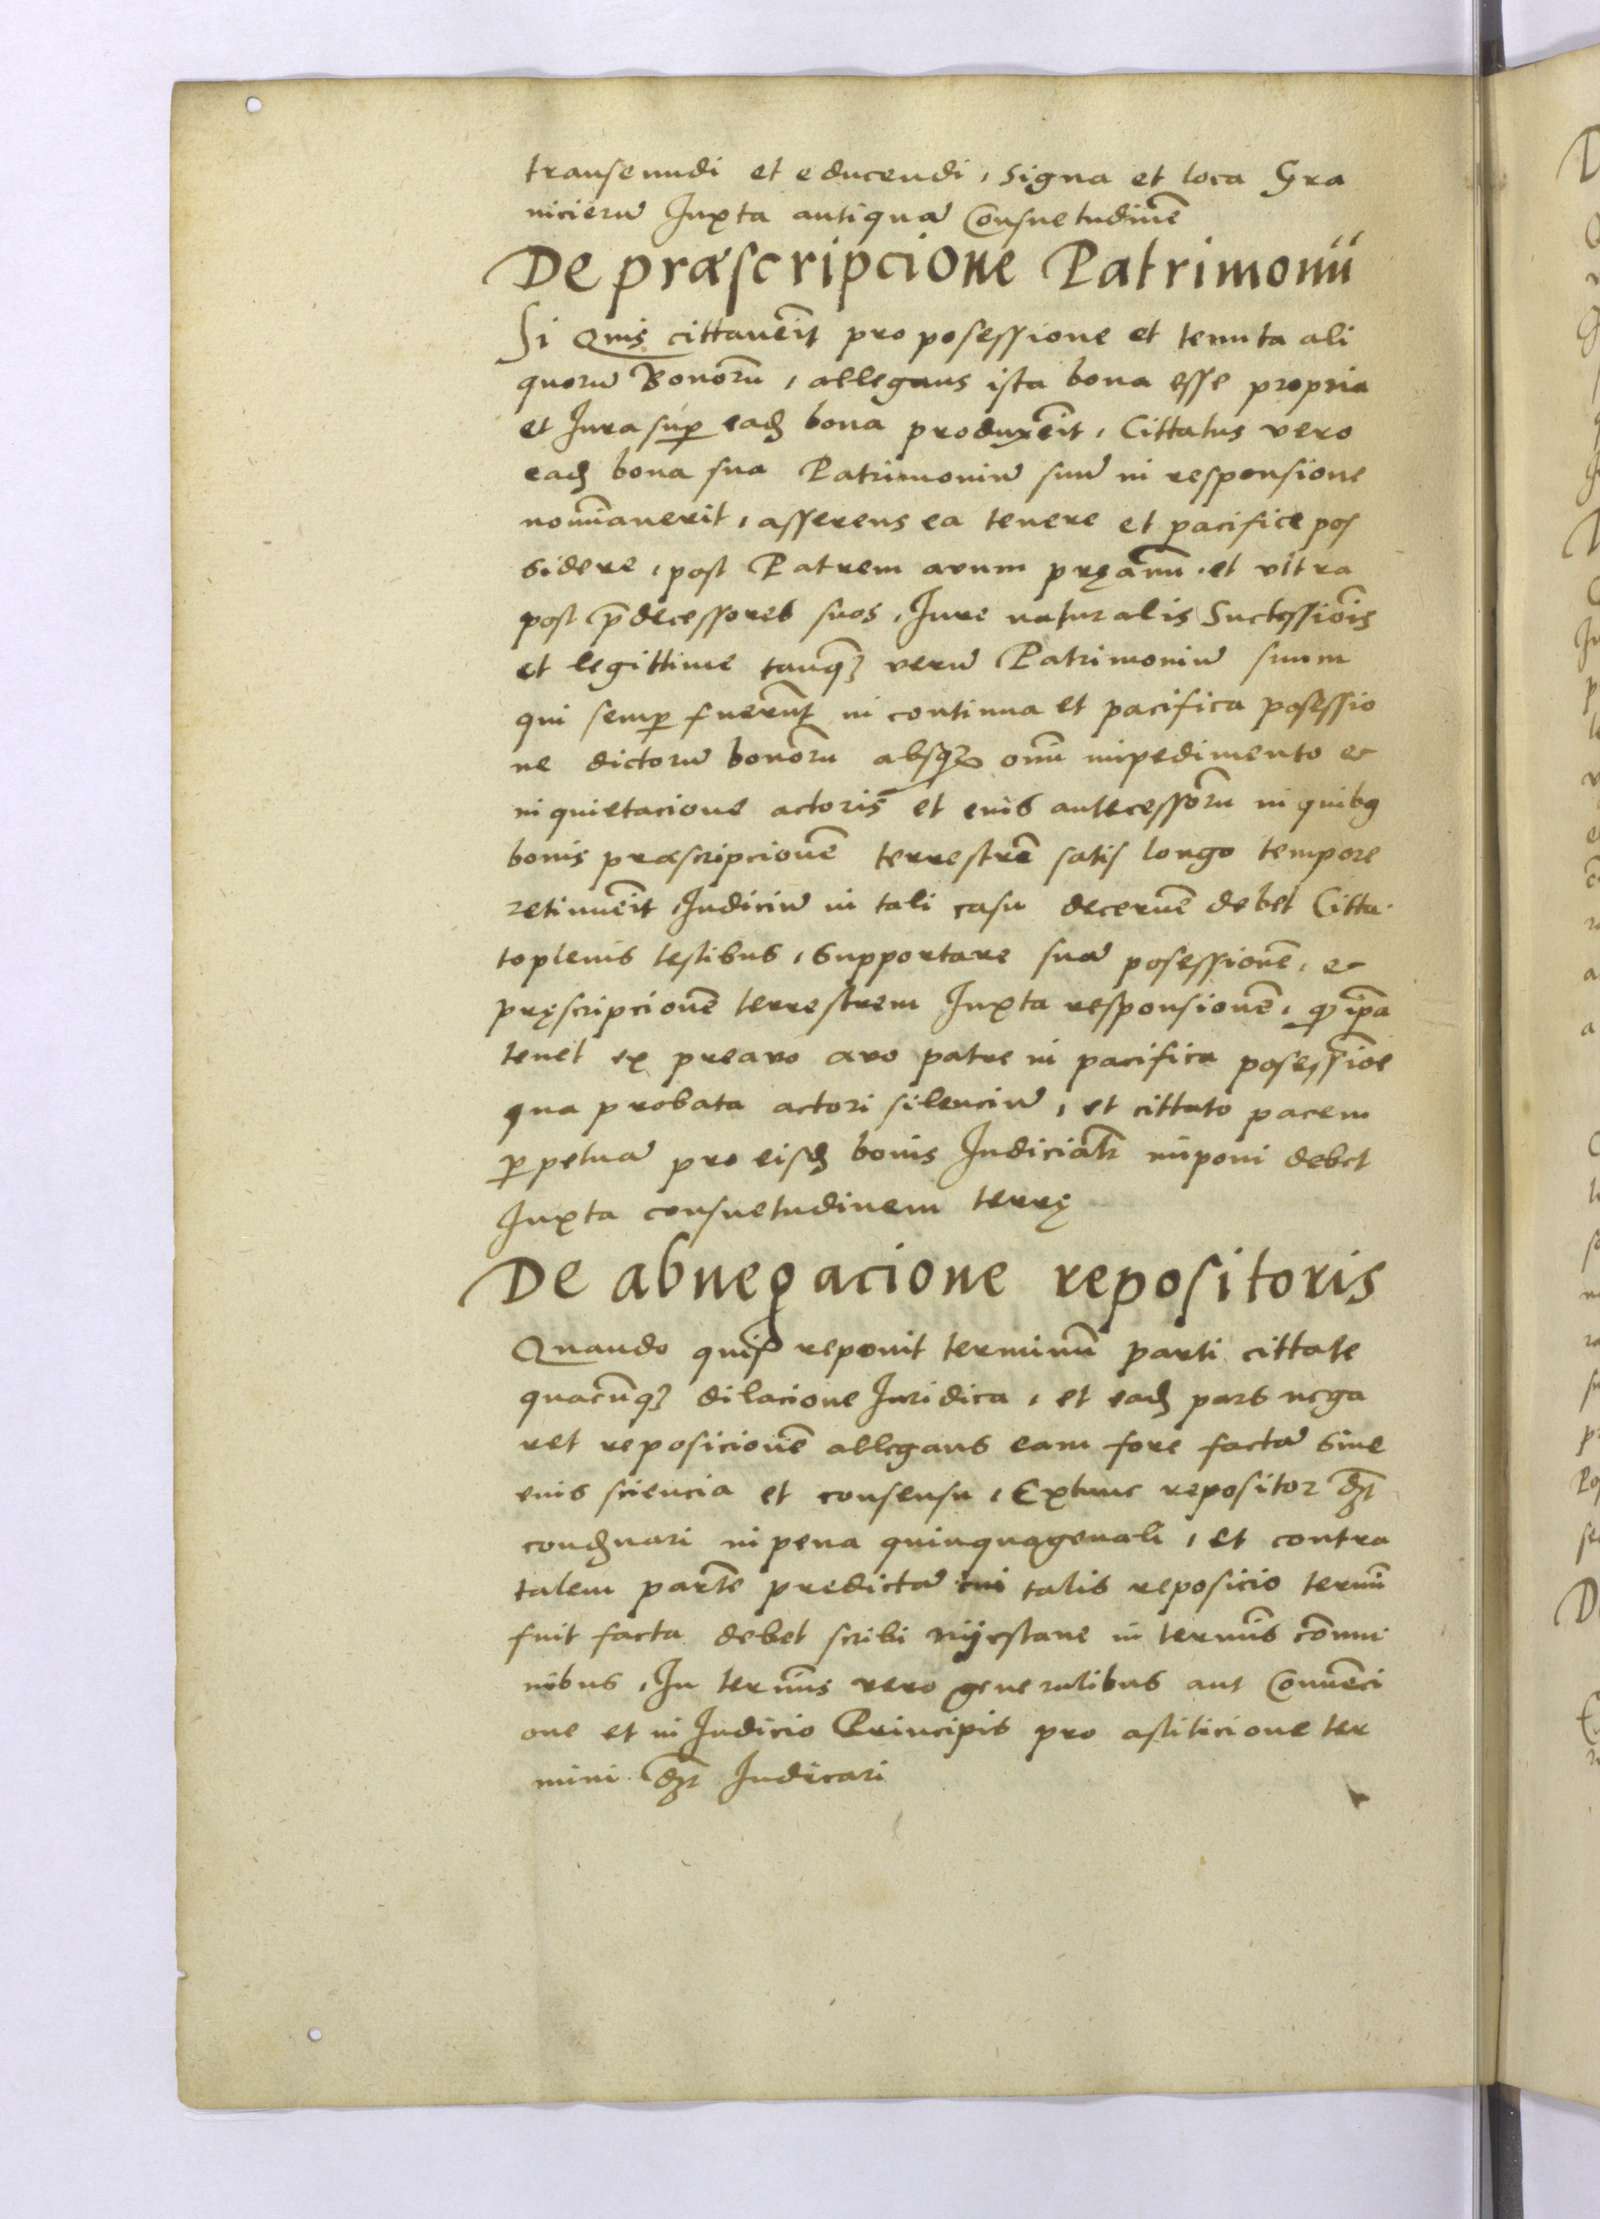 transeundi et educendi, Signa et loca Gra
nicierū Juxta antiquā Consuetudinē
De præscripcione Patrimonii
Si Quis cittauēit pro posessione et tenuta ali
quorū Bonorū, allegans ista bona esse propria
et Jura suꝑ eadꝫ bona produxēit, Cittatus vero
eadꝫ bona sua Patrimoniū suū in responsione
nom̄auerit, asserens ea tenere et pacifice pos
sidere, post Patrem auum pręauū et vltra
post p̄decessores suos, Jure naturalis Successiois
et legittime tanqꝫ verū Patrimoniū suum
qui semꝑ fuerūt in continua et pacifica posessio
ne dictorū bonorū absqꝫ om̄i impedimento et
in quietacione actoris et eius antecessorū in quibꝯ
bonis præscripcionē terrestrē satis longo tempore
retinuēit Judiciū in tali casu decernē debet Citta
to plenis testibus, Supportare suā posessionē, et
pręscripcionē terrestrem Juxta responsionē, ꝙ ip̄a
tenet ex preauo auo patre in pacifica posessioe
qua probata actori silenciū, et cittato pacem
ꝑpetuā pro eisdꝫ bonis Judicialr̄ imponi debet
Juxta consuetudinem terrę
De abnegacione repositoris
Quando quis reponit terminū parti cittate
quacūqꝫ dilacione Juridica, et eadꝫ pars nega
ret reposicionē allegans eam fore factā Sine
eius sciencia et consensu, Extunc repositor dꝫt
condꝫnari in pena quinquagenali, et contra
talem partē predictā cui talis reposicio term̄i
fuit facta debet scribi nijestane in termīs com̄u
nibus, In termīs vero generalibus aut Conuēci
one et in Judicio Principis pro astiticione ter
mini dꝫt Judicari